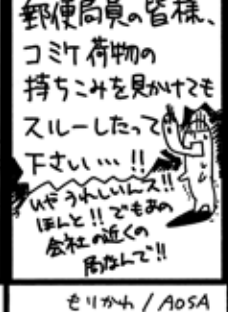 郵便局員の皆様、
コミケ荷物の
持ちこみを見かけても
スルーしたって
下さい…!!
いやうれしいんス!!
ほんと!!でもあの
会社の近くの
局なんで!!
もりかわ/AOSA